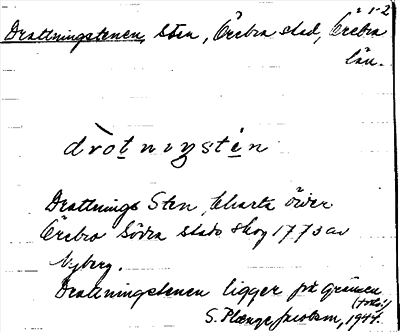 Drottningstenen, Sten, Örebro stad, Örebro
län.
drotniŋstén
Drottnings Sten, Charta öwer
Örebro Södra stads skog 1773 av
Nyberg.
Drottningstenen ligger på gränsen
S. Plænge Jacobson, 1944.